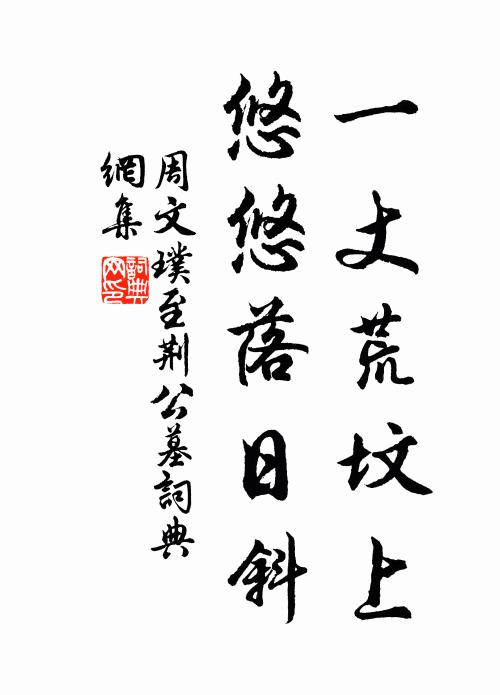 一丈荒坟上
悠悠落日斜
周文璞至荆公墓詞典
網集
詞典
网印